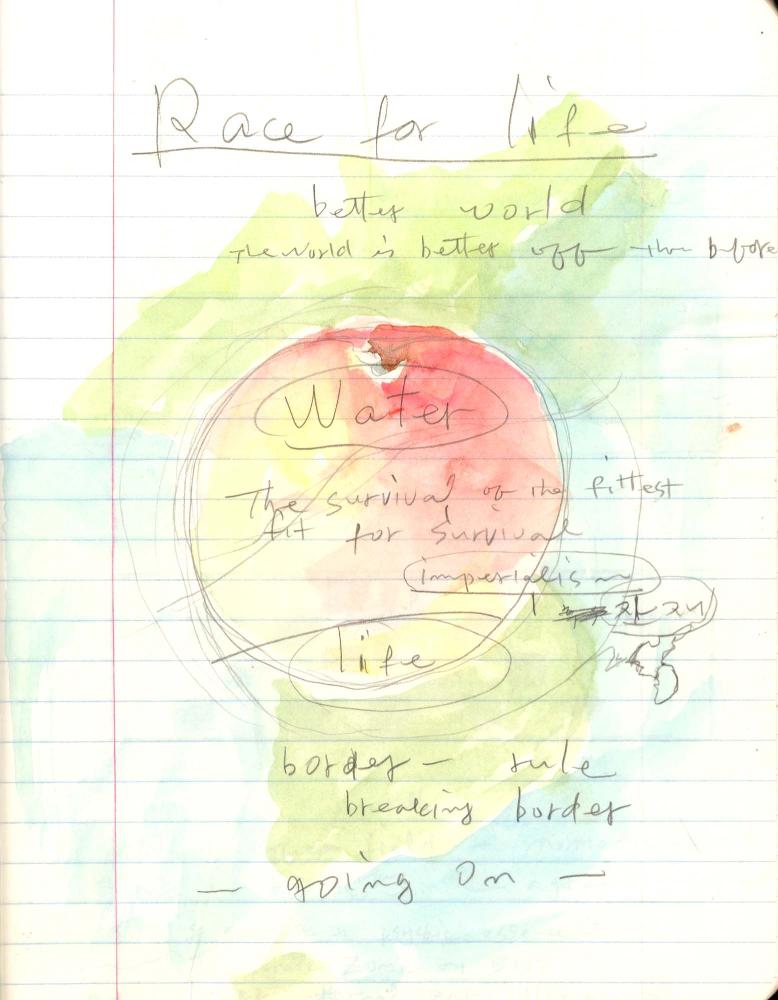 Race for life
better world
The world is better off than before
Water
The survival of the fittest
fit for survival
imperialism
잔재
life
border — rule
breaking border
— going on —